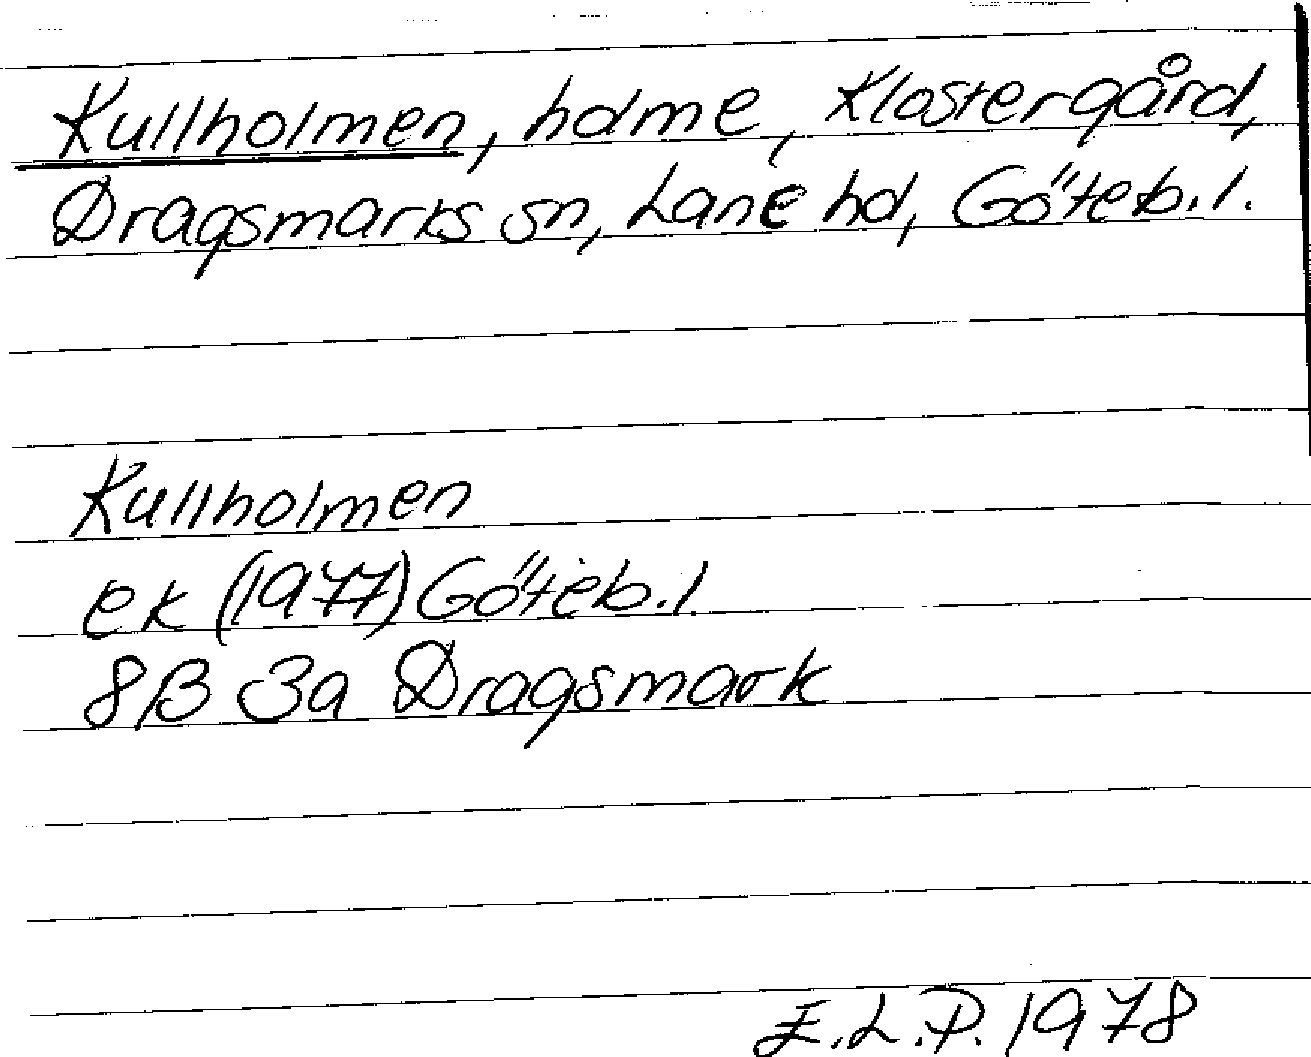 Kullholmen, holme, Klostergård,
Dragsmarks sn, Lane hd, Göteb.l.
Kullholmen
ek (1977) Göteb.l.
8B 3a Dragsmark
E.L.P. 1978